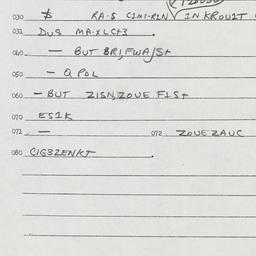 030 $ RA-S C1N1-RLN IN KROU1T
031 DUS MA-XLCT3
040 — BUT BRI,FWA/St
050 — Q POL
060 — BUT ZISN,ZOUE F1St
070 ES1K
071 — 072. ZOUEZAUC
080 CIG3ZENKT